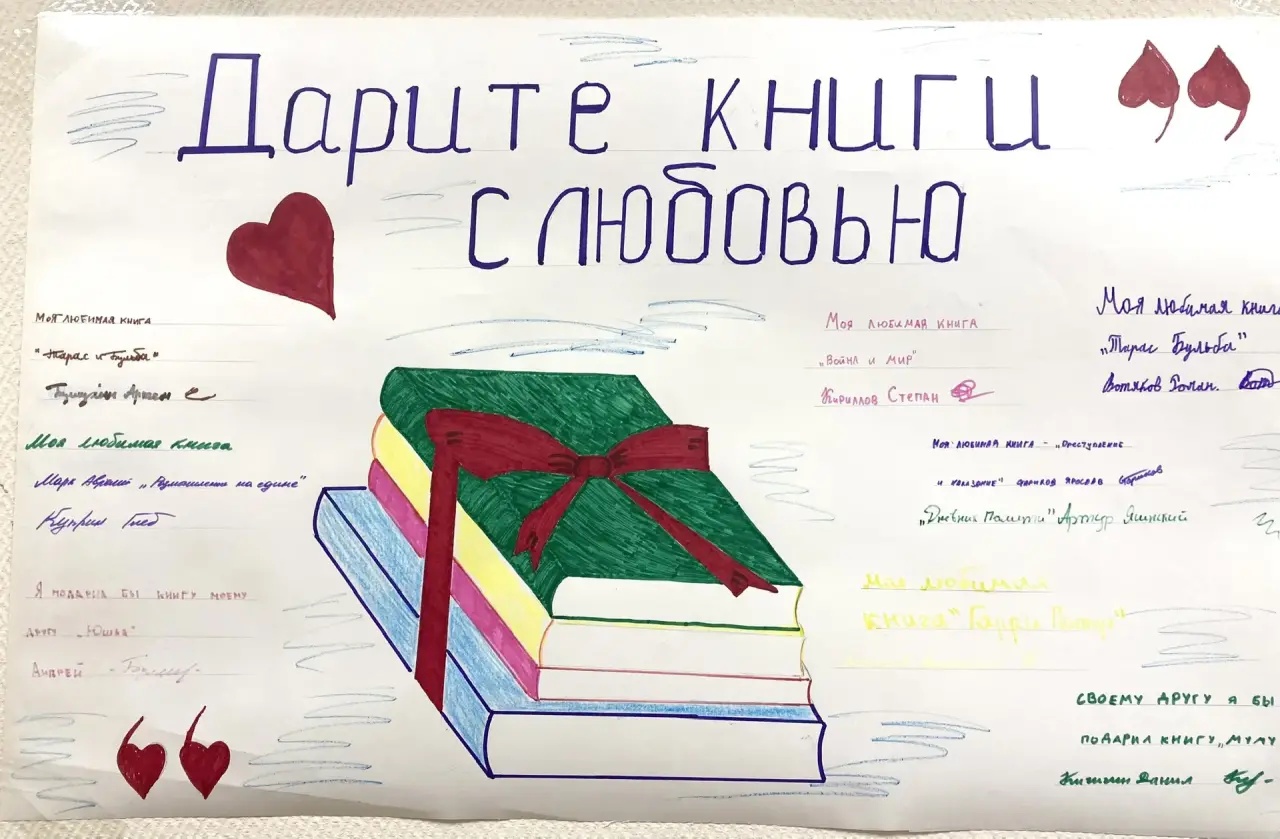 Дарите книги
с любовью
Моя любимая книга
"Тарас и Бульба"
Артем
Моя любимая книга
Марк Аврелий „Размышления на едине"
Куприн Глеб
Я подарил бы книгу моему
другу „Юшка"
Андрей
Моя любимая книга
„Война и мир"
Кириллов Степан
Моя любимая книга
„Тарас Бульба"
Вотяков Роман.
Моя любимая книга - „Преступление
и наказание" Ярослав
„Дневник Памяти" Артур Яшинский
Моя любимая
книга "Гарри Поттер"
Своему другу я бы
подарил книгу „Муму
Данил